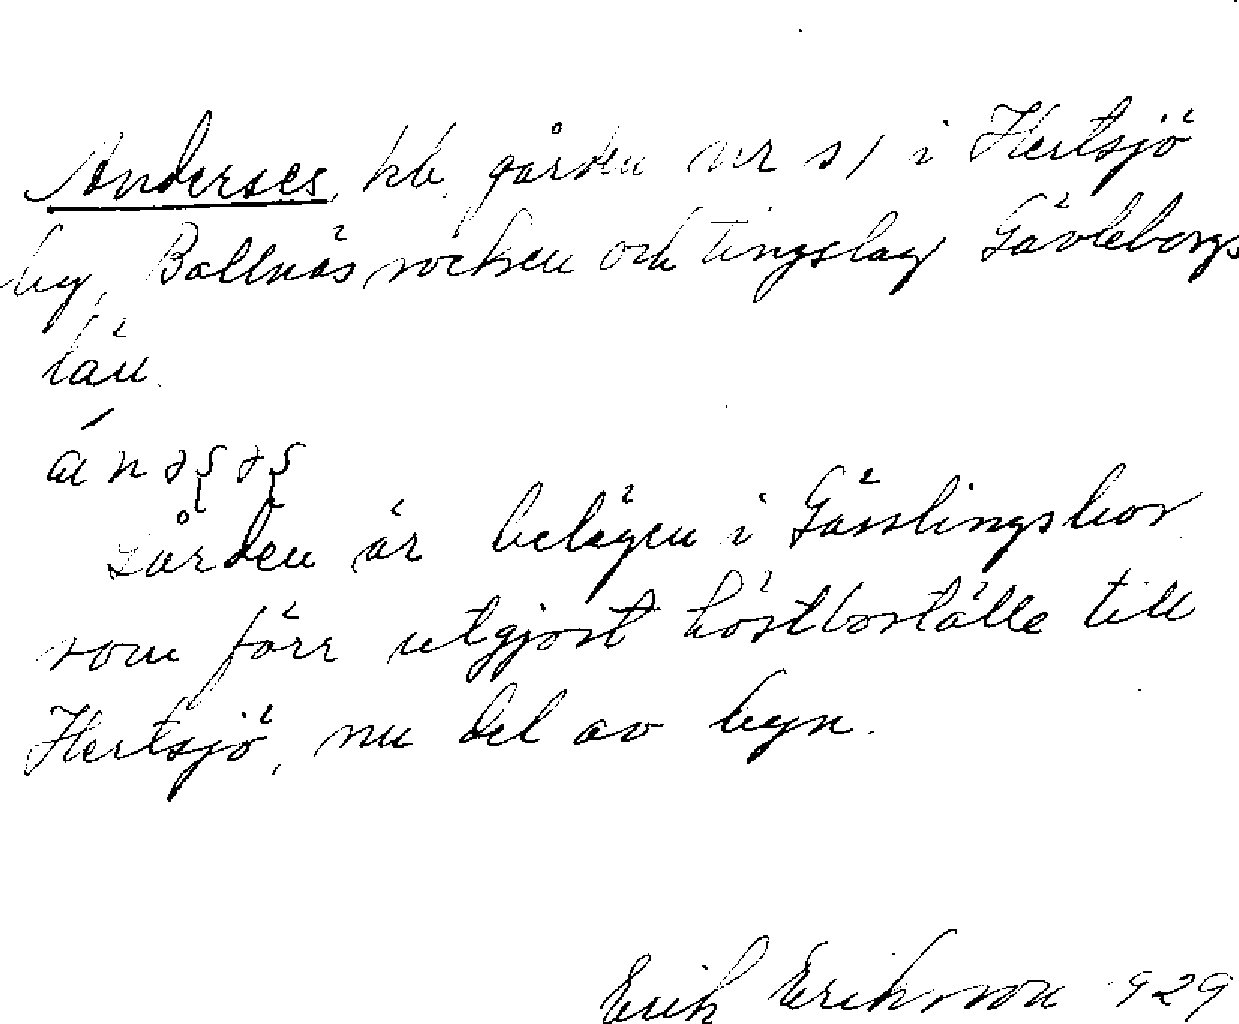 Anderses, hb. gården nr 
i Hertsjö
by, Bollnäs socken och tingslag Gävleborgs
län.
Gården är belägen i Gässlingsbor
som förr utgjort höstboställe till
Hertsjö, nu del av byn.
Erik Eriksson 929